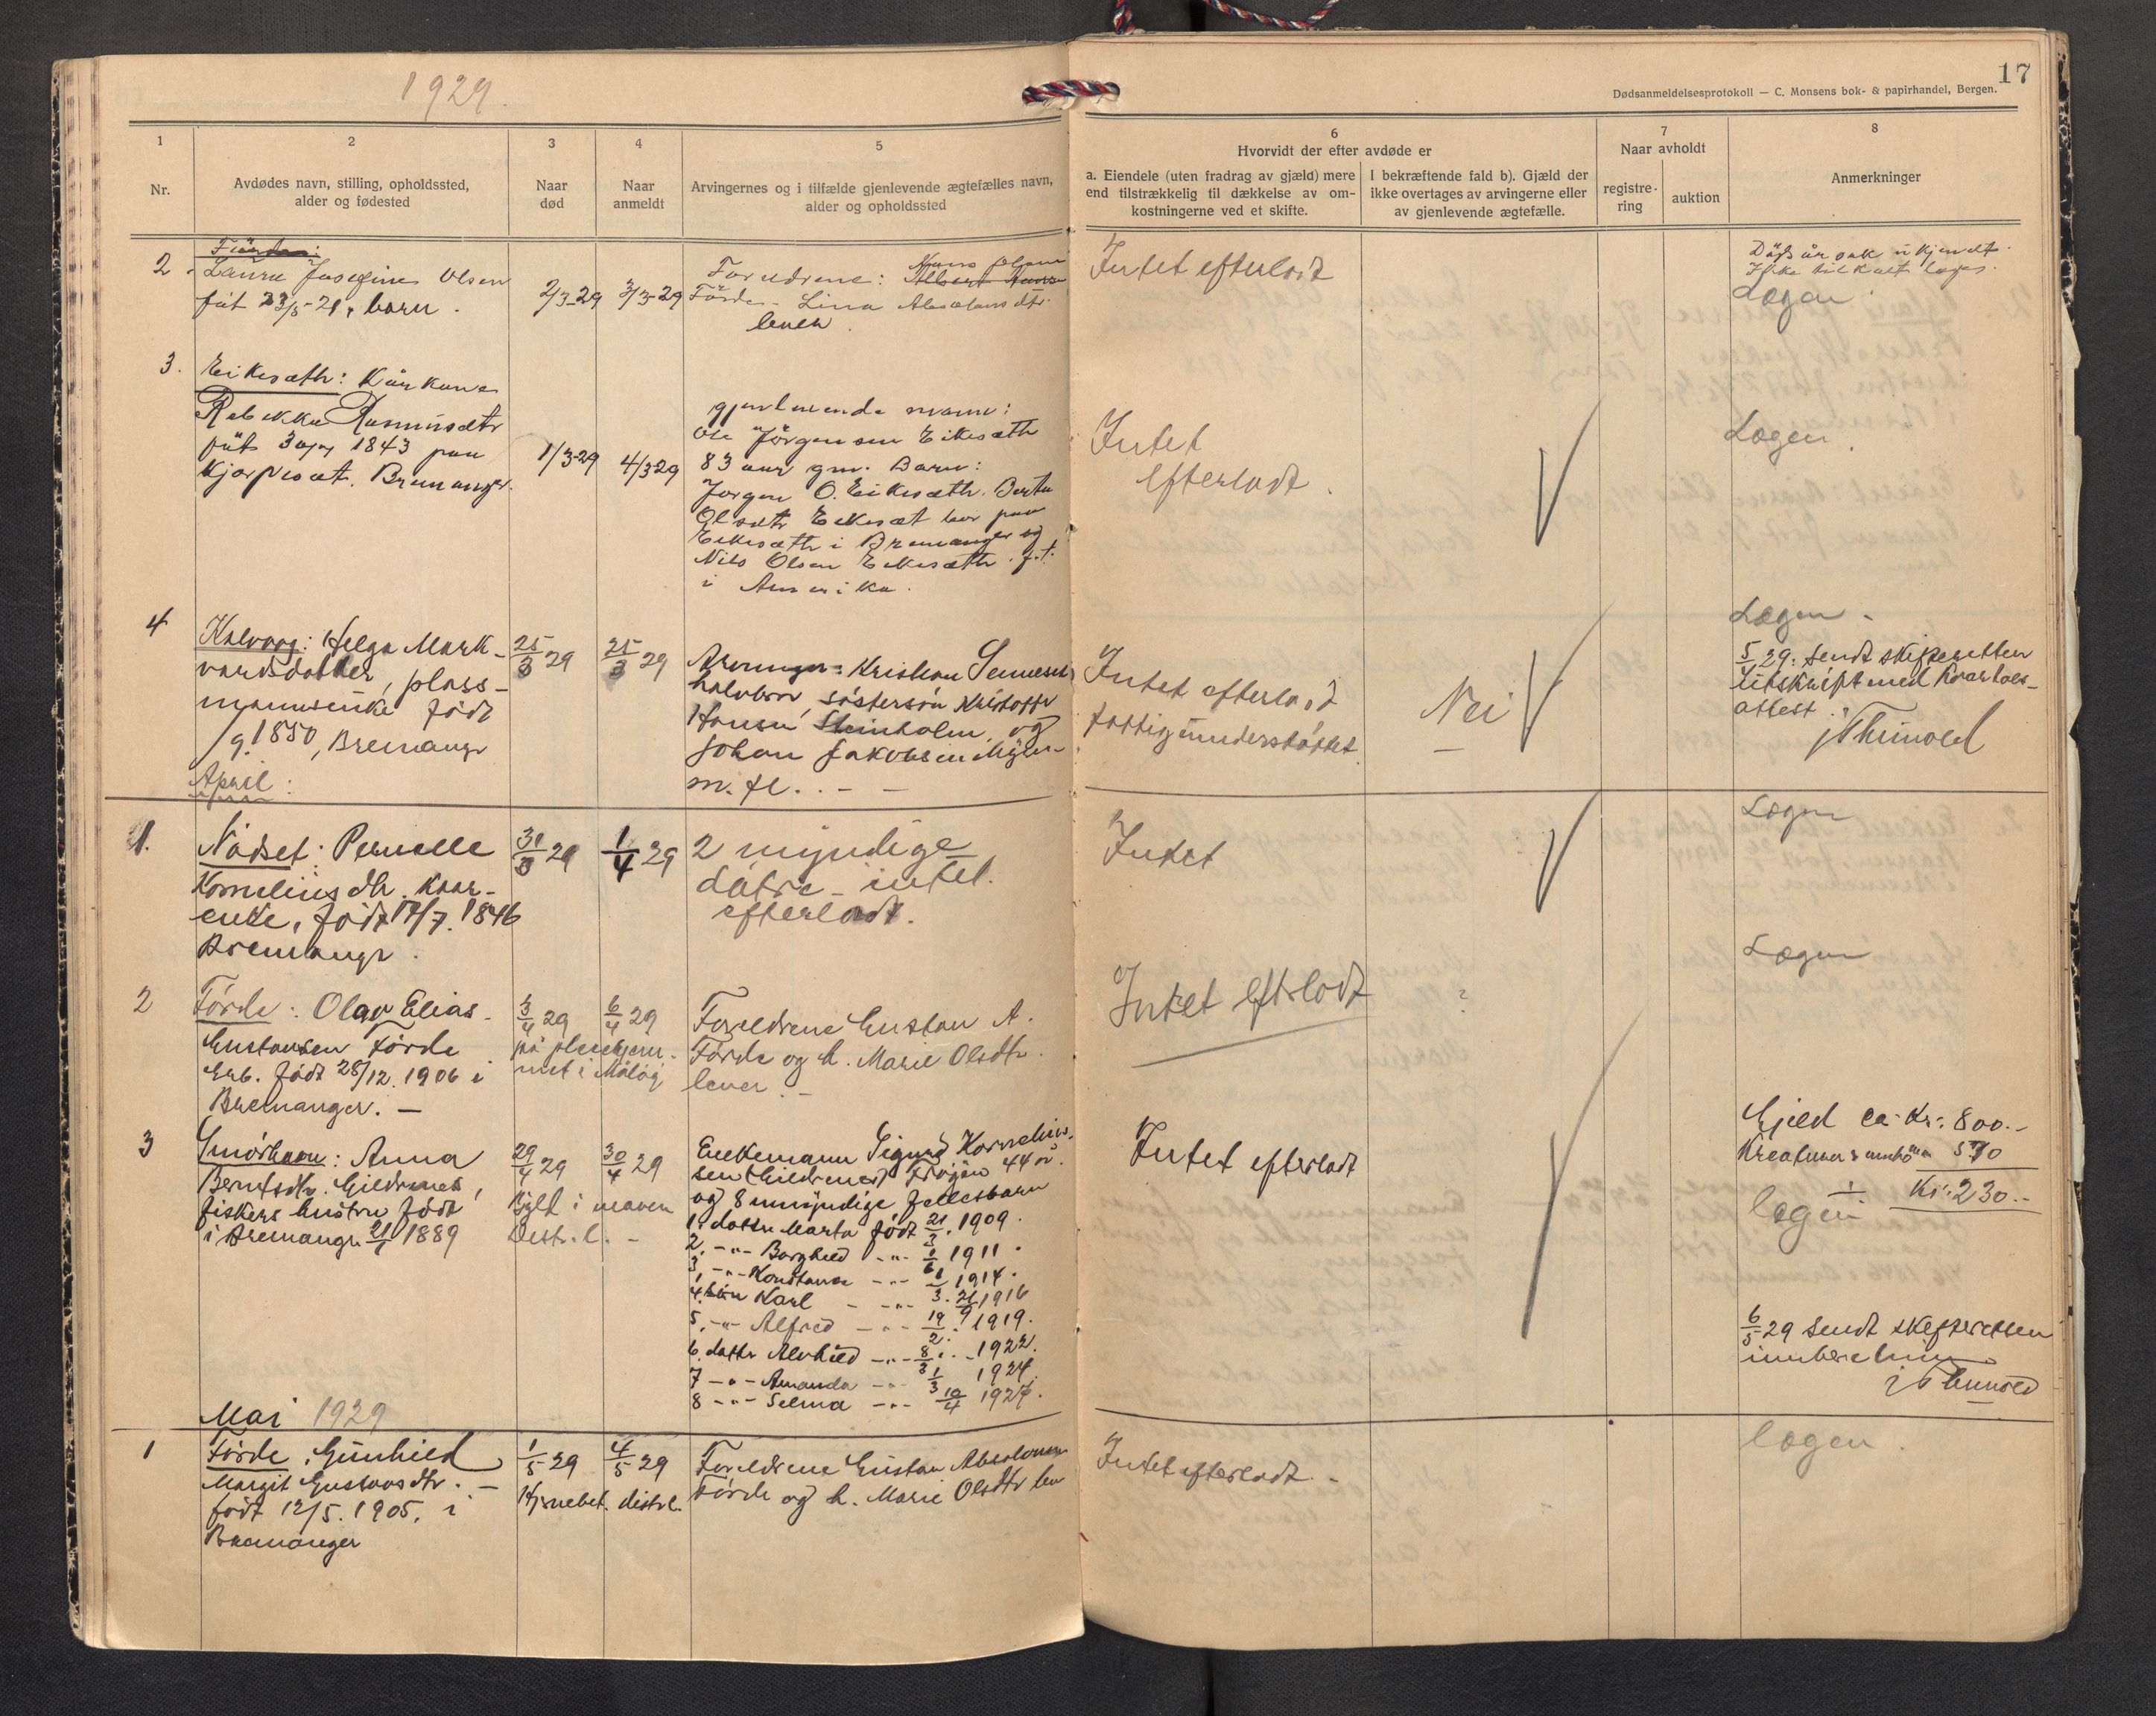 1929.
17
Dødsanmeldelsesprotokoll — C. Monsens bok- & papirhandel, Bergen.
1
Nr.
2
Avdødes navn, stilling, opholdssted,
alder og fødested
3
Naar
død
4
Naar
anmeldt
5
Arvingernes og i tilfælde gjenlevende ægtefælles navn,
alder og opholdssted
6
Hvorvidt der efter avdøde er
a. Eiendele (uten fradrag av gjæld) mere
end tilstrækkelig til dækkelse av om-
kostningerne ved et skifte.
I bekræftende fald b). Gjæld der
ikke overtages av arvingerne eller
av gjenlevende ægtefælle.
7
Naar avholdt
registre-
ring
auktion
8
Anmerkninger
2
Laura Josefine Olsen
föt 23/5-21, barn.
2/3-29
3/3-29
Foreldrene: Hans Olsen
Förde - Lina Absalonsdtr.
lever.
Intet efterladt
Dödsårsak ukjendt.
Ikke tilkalt læge.
Lægen.
3.
Eikesæth: Kårkone
Rebekka Rasmusdtr
föt 1843 paa
Bremanger.
1/3-29
4/3-29
gjenlevende mann:
Ole Jörgensen Eikesæth
83 aar gm. Barn:
Jörgen O. Eikesæth. Berta
Olsdtr Eikesæt bor paa
Eikesæth i Bremanger og
Nils Olsen Eikesæth f.t.
i Amerika.
Intet
efterladt.
Lægen.
4
Kalvaag: Helga Mark-
vardsdatter, plass-
mannsenke födt
/9. 1850, Bremangr
25/3 29
25/3 29
Arvinger: Kristian
halvbror, söstersön Kristoffr
Hansen Steinholm, og
Johan Jakobsen
m. fl. . - -
Intet efterladt
fattigunderstöttet.
Nei
Lægen -
5/4 29: Sendt skifteretten
utskrift med
attest.
April:
1.
Nödset: Pernelle
Korneliusdtr. kaar-
enke, födt 17/7. 1846
Bremangr.
31/3 29
1/4 29
2 myndige
døtre - intet
efterladt.
Intet
Lægen
2
Förde: Olav Elias-
Gustavsen Förde
Erb. födt 28/12. 1906 i
Bremanger. —
3/4 29
6/4 29
på pleiehjem-
met i Måløy
Foreldrene Gustav A.
Förde og h. Marie Olsdtr.
lever. -
Intet efterladt
?
Lægen
3
Smörhavn: Anna
Berntsdtr. Gildrenes,
fiskers hustru födt
i Bremangr. 21/1 1889
29/4 29
30/4 29
Bylt i maven
Destr. l. -
Enkemann Sigurd Kornelius-
sen (Gildrenes) Fröjen 44 år.
og 8 umyndige fellesbarn
1. dattr Marta födt 21/3. 1909.
2. -"- Borghild -"- 1911.
3. -"- Konstanse -"- 1914.
4. sön Karl - -"- 1916
5. -"- Alfred -"- 19/2. 1919.
6. dattr Alvhild -"- 8/3. 1922.
7 -"- Amanda -"- 1/3 1924.
8 -"- Selma -"- 10/4 1927.
Intet efterladt
Gjeld ca. Kr. 800.-
Kreatur & innbo 570
Kr. 230.-
lægen
6/5 29 Sendt skifteretten
innberetning
Mai 1929
1
Förde: Gunhild
Margit Gustavsdtr. -
födt 12/5. 1905. i
Bremanger
1/5 29
4/5 29
Hjernebet. distr.l.
Foreldrene Gustav Absalonsen
Förde og h. Marie Olsdtr lev
Intet efterladt. -
lægen.